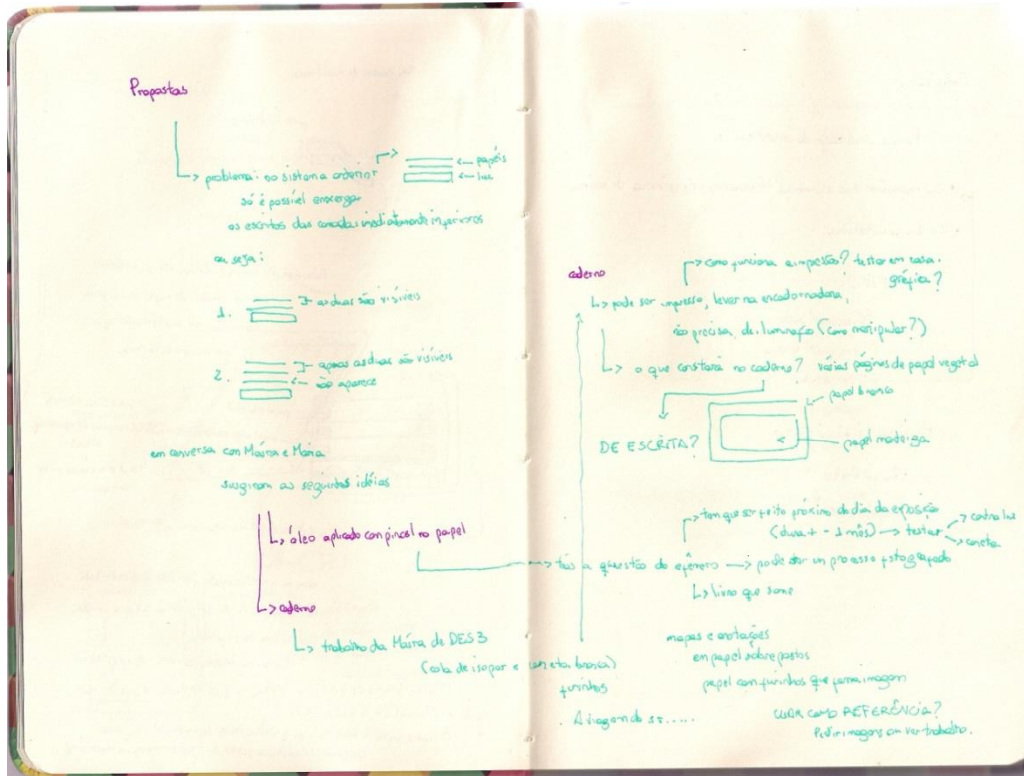 Propostas
problema: no sistema anterior
só é possível enxergar
os escritos das camadas imediatamente inferiores
papéis
luz
ou seja:
1.
as duas são visíveis
2.
apenas as duas são visíveis
não aparece
em conversa com Maíra e Maria
surgiram as seguintes idéias
óleo aplicado com pincel no papel
caderno
trabalho da Maíra de DES3
(cola de isopor e caneta branca)
furinhos
A viagem do sr.....
caderno
como funciona a impressão? testar em casa.
gráfica?
pode ser impresso, levar na encadernadora,
não precisa de iluminação (como manipular?)
o que constará no caderno? várias páginas de papel vegetal
papel branco
DE ESCRITA?
papel manteiga
tem que ser feito próximo do dia da exposição
(dura + - 1 mês) testar
contra luz
caneta
trás a questão do efêmero pode ser um processo fotografado
livro que some
mapas e anotações
em papel sobrepostos
papel com furinhos que forma imagem
COMO REFERÊNCIA?
Pedir imagens ou ver trabalho.